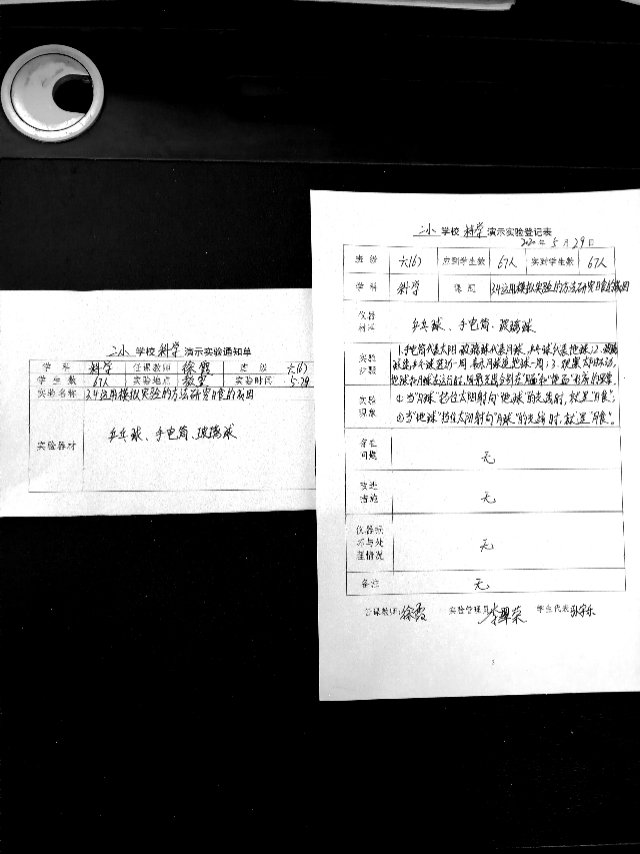 二小 学校 科学 演示实验通知单
学 科 科学 任课教师 徐霞 班 级 六(6)
学 生 数 67人 实验地点 教室 实验时间 5.29
实验名称 24运用模拟实验的方法研究日食的成因
实验器材 乒乓球、手电筒、玻璃球
二小 学校 科学 演示实验登记表
2020年 5 月 29 日
班 级 六(6) 应到学生数 67人 实到学生数 67人
学 科 科学 课 题 24运用模拟实验的方法研究日食的成因
仪器
乒乓球、手电筒、玻璃球
实验
步骤
1.手电筒代表太阳,玻璃球代表月球,乒乓球代表地球;2.玻璃
球绕乒乓球转一周,表示月球绕地球一周;3.观察
实验
现象
①当"月球"挡住太阳射向"地球"的光线时,就是"日食"。
②当"地球"挡住太阳射向"月球"的光线时,就是"月食"。
存在
问题
无
改进
措施
无
仪器损
坏与处
理情况
无
备注 无
任课教师:徐霞 实验管理员 李翠荣 学生代表